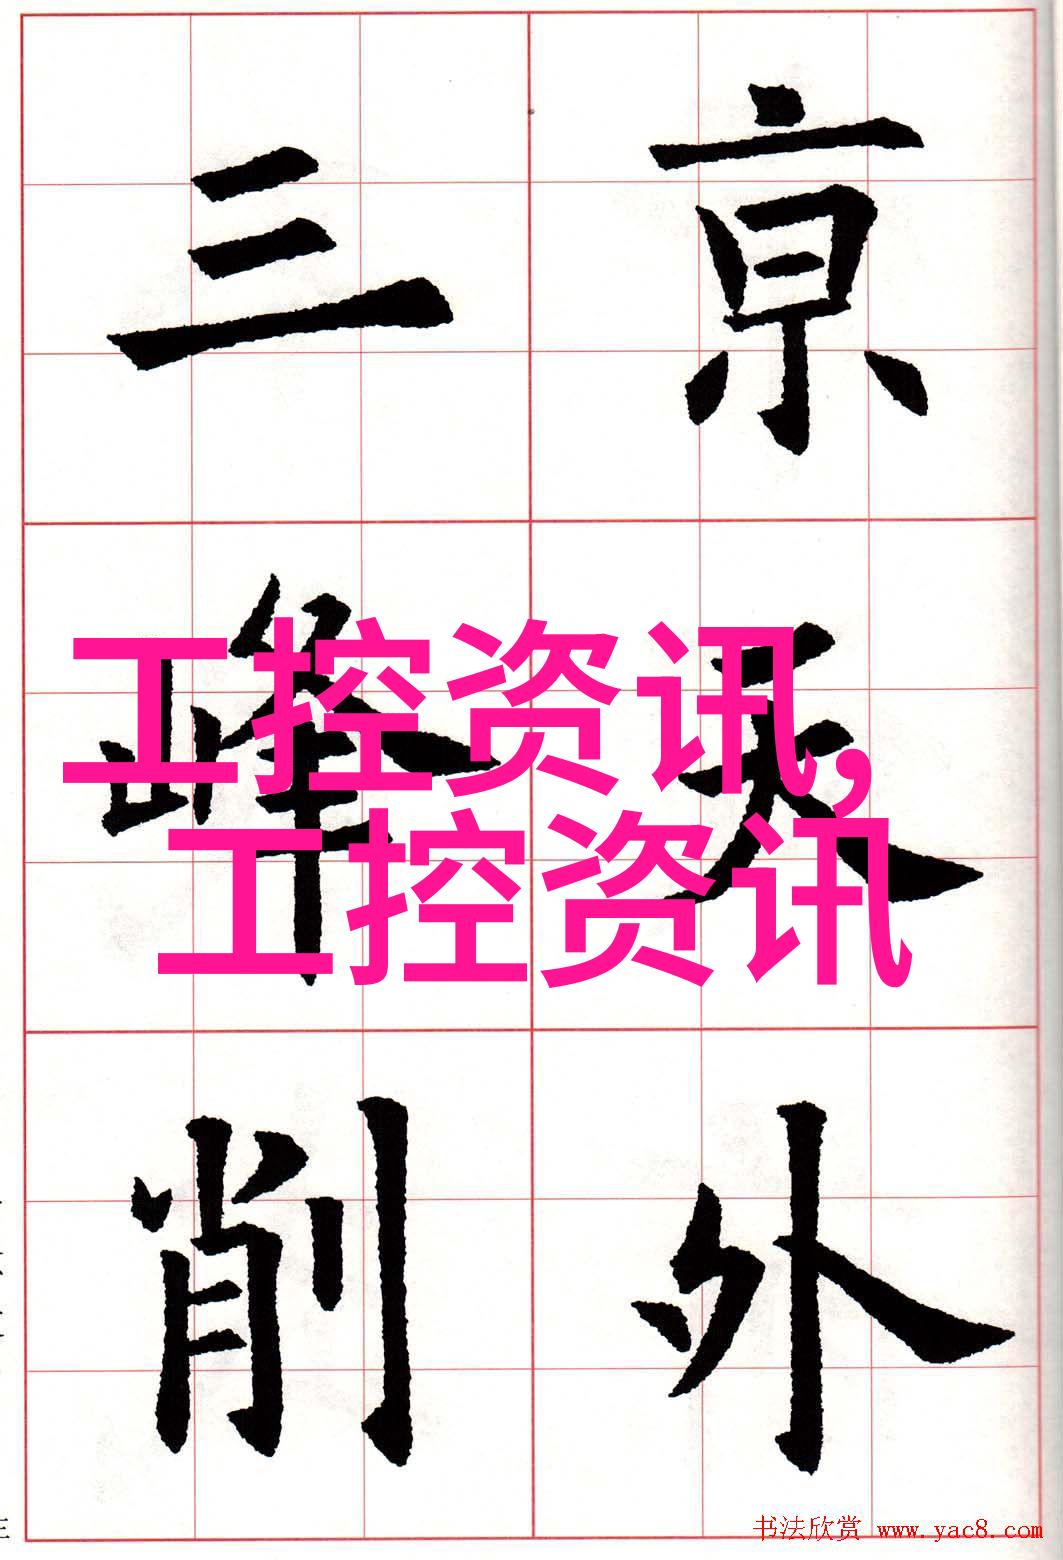 京
天
外
三
峰
削
工控资讯,
工控资讯
书法欣赏 www.yac8.com